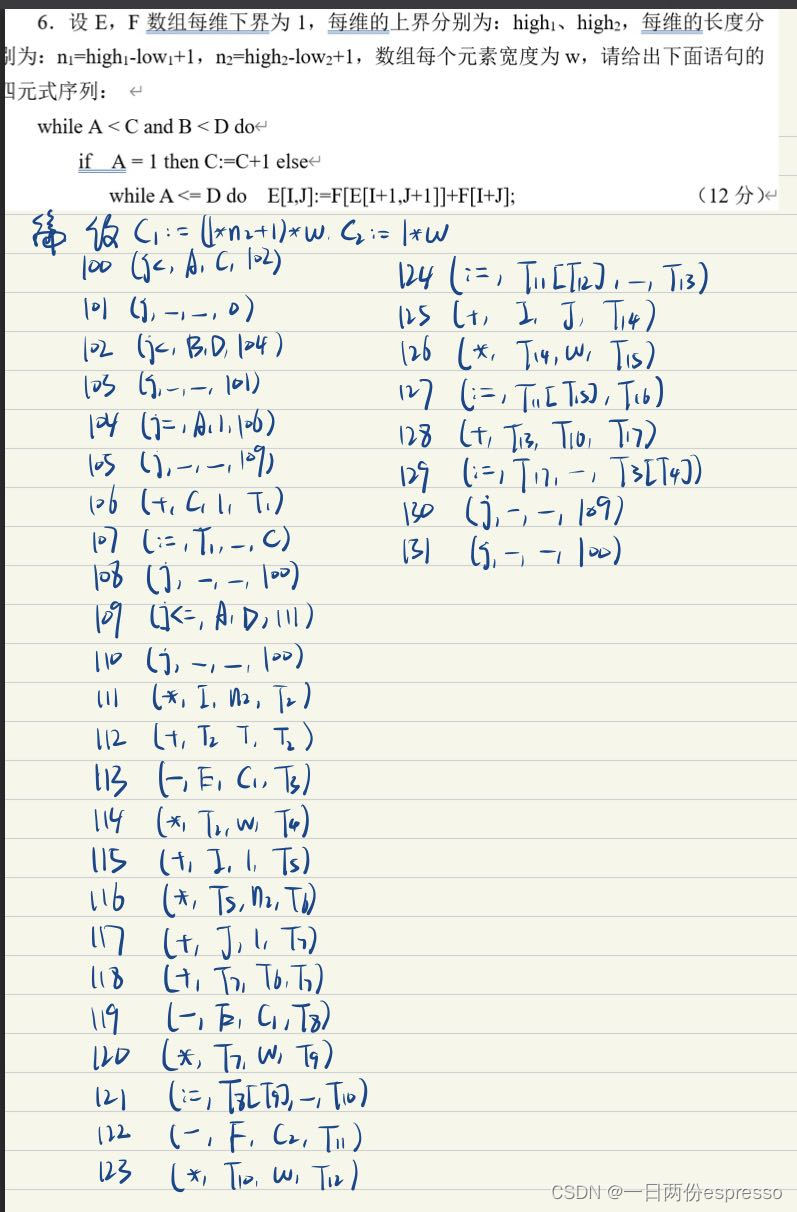 6．设 E，F 数组每维下界为 1，每维的上界分别为：high₁、high₂，每维的长度分
别为：n₁=high₁-low₁+1，n₂=high₂-low₂+1，数组每个元素宽度为 w，请给出下面语句的
四元式序列：
while A < C and B < D do
if A = 1 then C:=C+1 else
while A <= D do E[I,J]:=F[E[I+1,J+1]]+F[I+J]; （12 分）
C₁:=(1*n₂+1)*w. C₂:=1*w
100 (j<, A, C, 102)
101 (j, -, -, 0)
102 (j<, B, D, 104)
103 (j, -, -, 101)
104 (j=, A, 1, 106)
105 (j, -, -, 109)
106 (+, C, 1, T₁)
107 (:=, T₁, -, C)
108 (j, -, -, 100)
109 (j<=, A, D, 111)
110 (j, -, -, 100)
111 (*, I, n₂, T₂)
112 (+, T₂ T, T₂)
113 (-, E, C₁, T₃)
114 (*, T₂, w, T₄)
115 (+, I, 1, T₅)
116 (*, T₅, n₂, T₆)
117 (+, J, 1, T₇)
118 (+, T₇, T₆, T₇)
119 (-, E, C₁, T₈)
120 (*, T₇, w, T₉)
121 (:=, T₈[T₉], -, T₁₀)
122 (-, F, C₂, T₁₁)
123 (*, T₁₀, w, T₁₂)
124 (:=, T₁₁[T₁₂], -, T₁₃)
125 (+, I, J, T₁₄)
126 (*, T₁₄, w, T₁₅)
127 (:=, T₁₁[T₁₅], T₁₆)
128 (+, T₁₃, T₁₀, T₁₇)
129 (:=, T₁₇, -, T₃[T₄])
130 (j, -, -, 109)
131 (j, -, -, 100)
CSDN @一日两份espresso